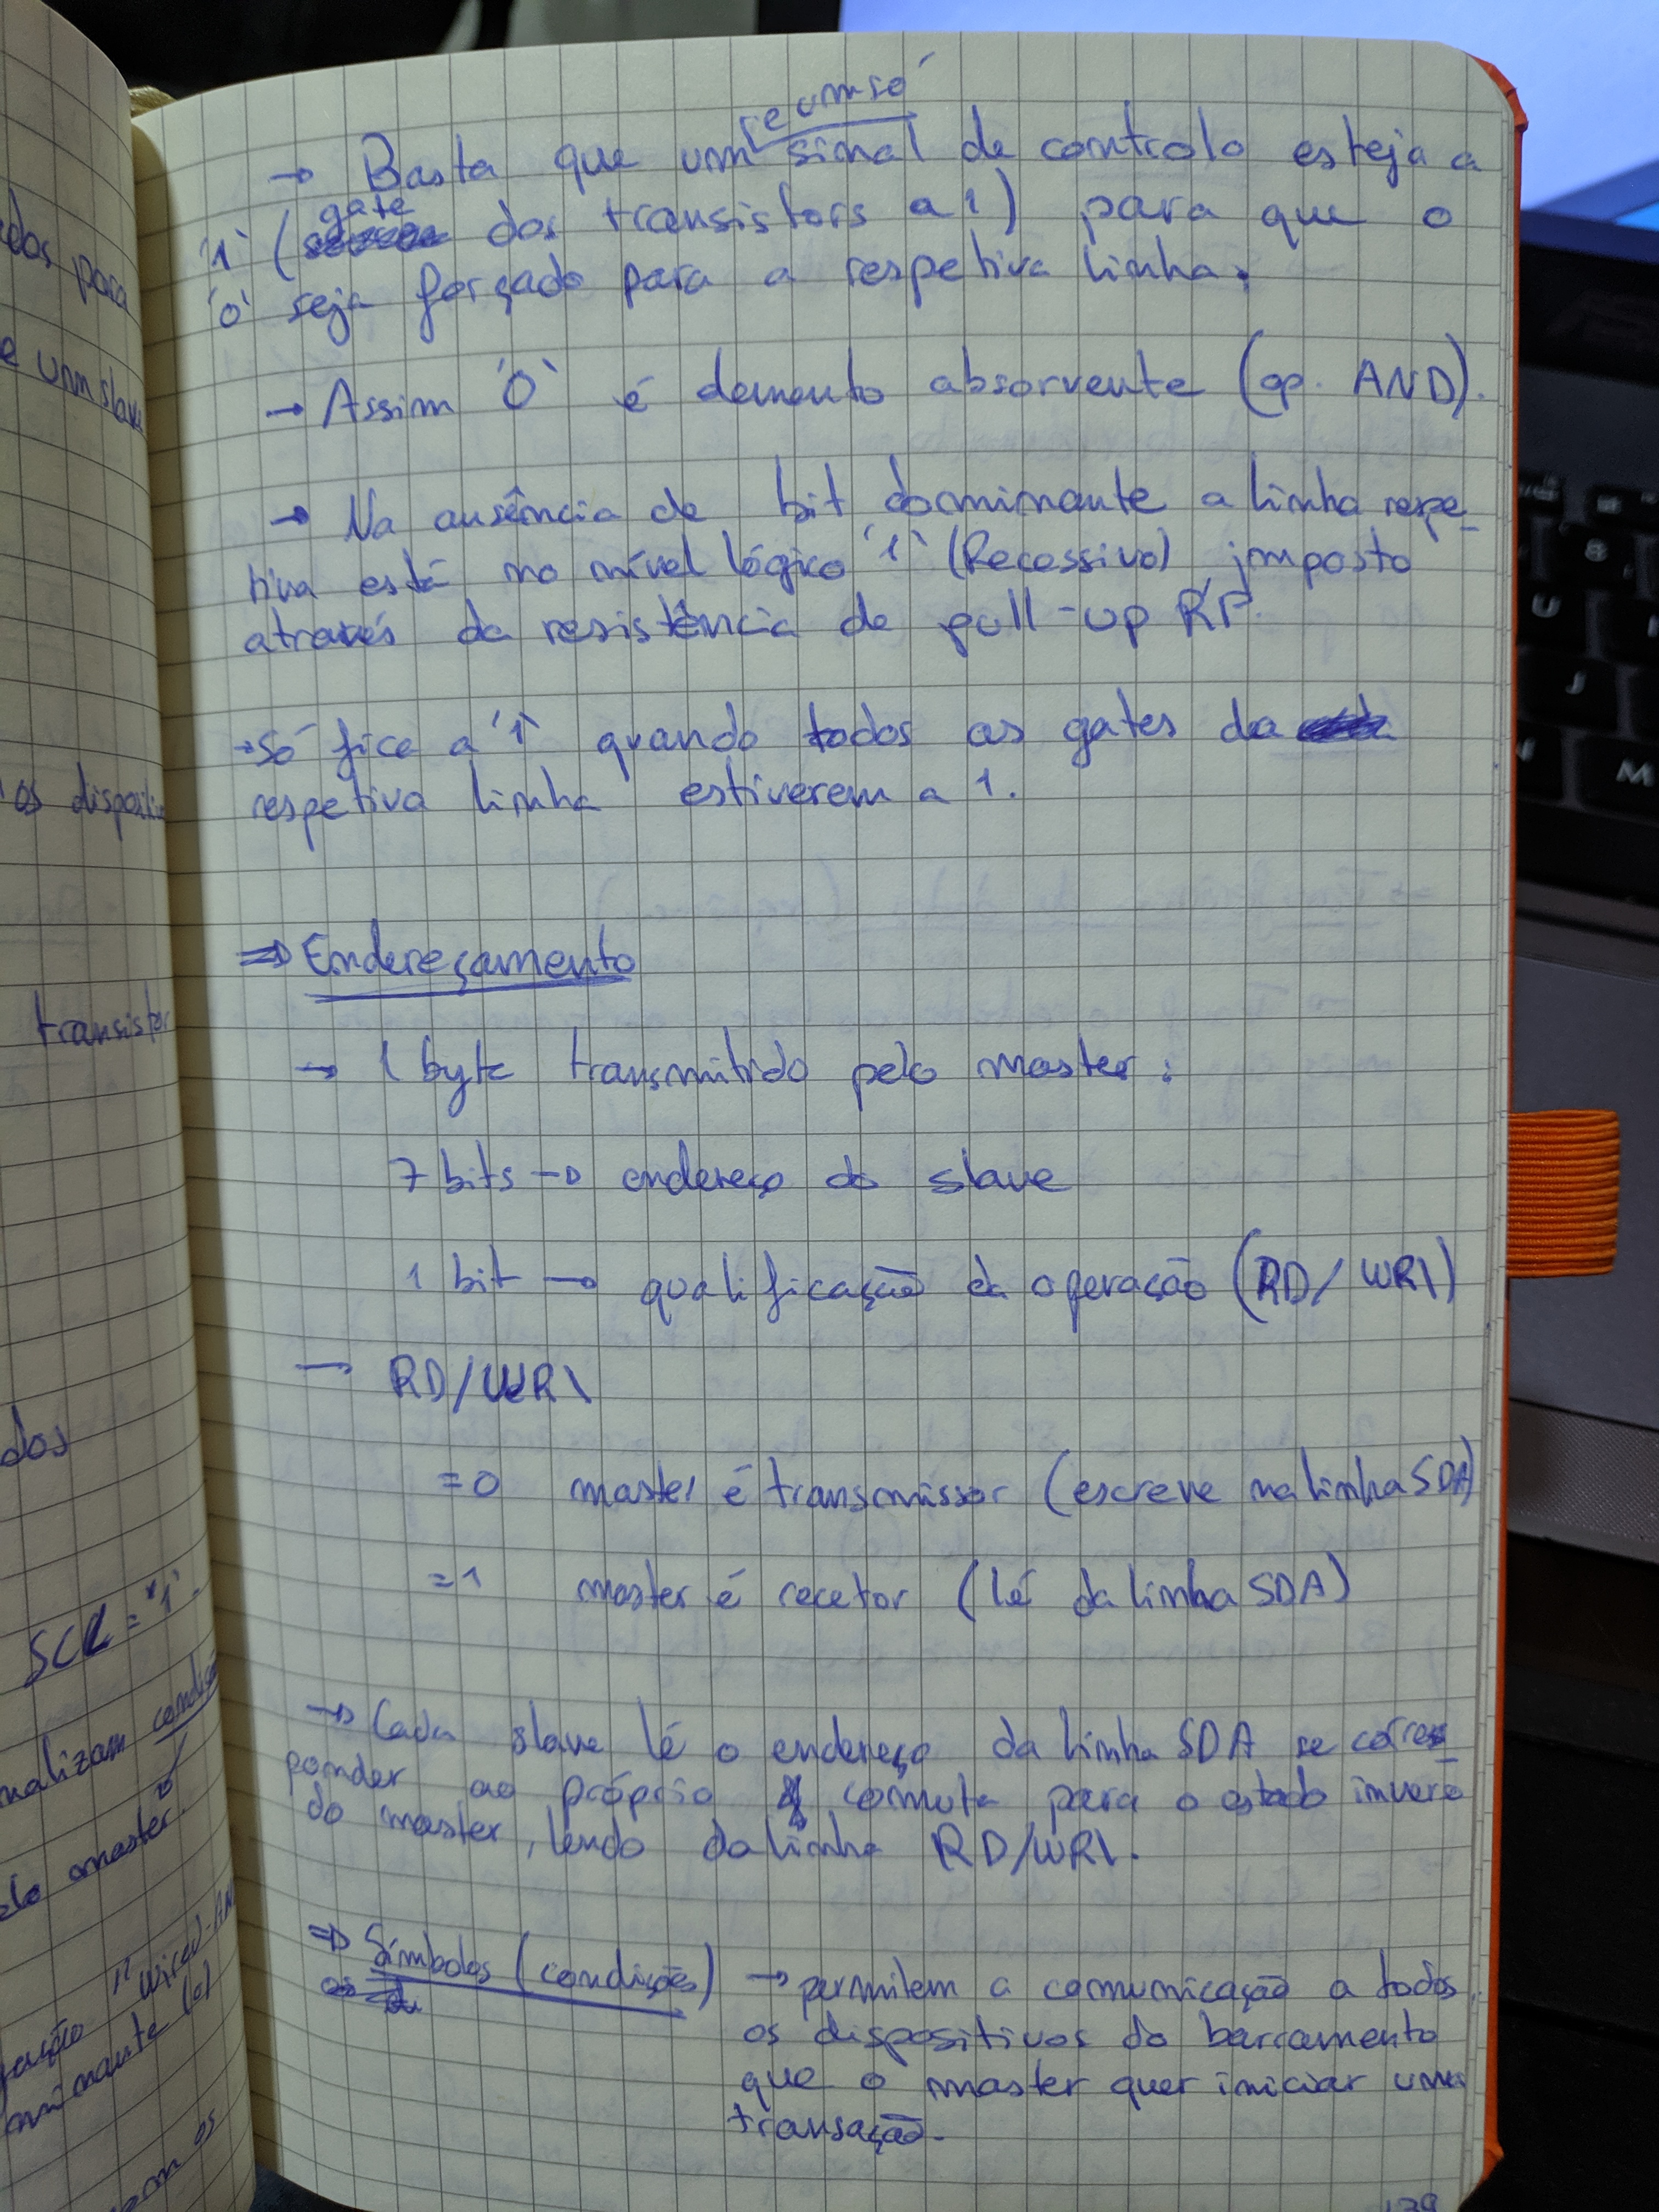 edos para
e um slave
os dispositiv
transistor
dos
SCL = '1'.
nalizam condiçõ
lo master.
"wired-AN
minante (0)
os
e um só
→ Basta que um sinal de controlo esteja a
gate
'1' ( dos transistors a 1) para que o
'0' seja forçado para a respetiva linha.
→ Assim '0' é elemento absorvente (op. AND).
→ Na ausência de bit dominante a linha respe-
tiva está no nível lógico '1' (Recessivo), imposto
através da resistência de pull-up RP.
→ Só fica a '1' quando todos as gates da
respetiva linha estiverem a 1.
⇒ Endereçamento
→ 1 byte transmitido pelo master:
7 bits → endereço do slave
1 bit → qualificação da operação (RD/WR\)
→ RD/WR\
=0 master é transmissor (escreve na linha SDA)
=1 master é recetor (lê da linha SDA)
→ Cada slave lê o endereço da linha SDA se corres-
ponder ao próprio comuta para o estado inverso
do master, lendo da linha RD/WR\.
⇒ Símbolos (condições) → permitem a comunicação a todos
os dispositivos do barramento
que o master quer iniciar uma
transação.
139